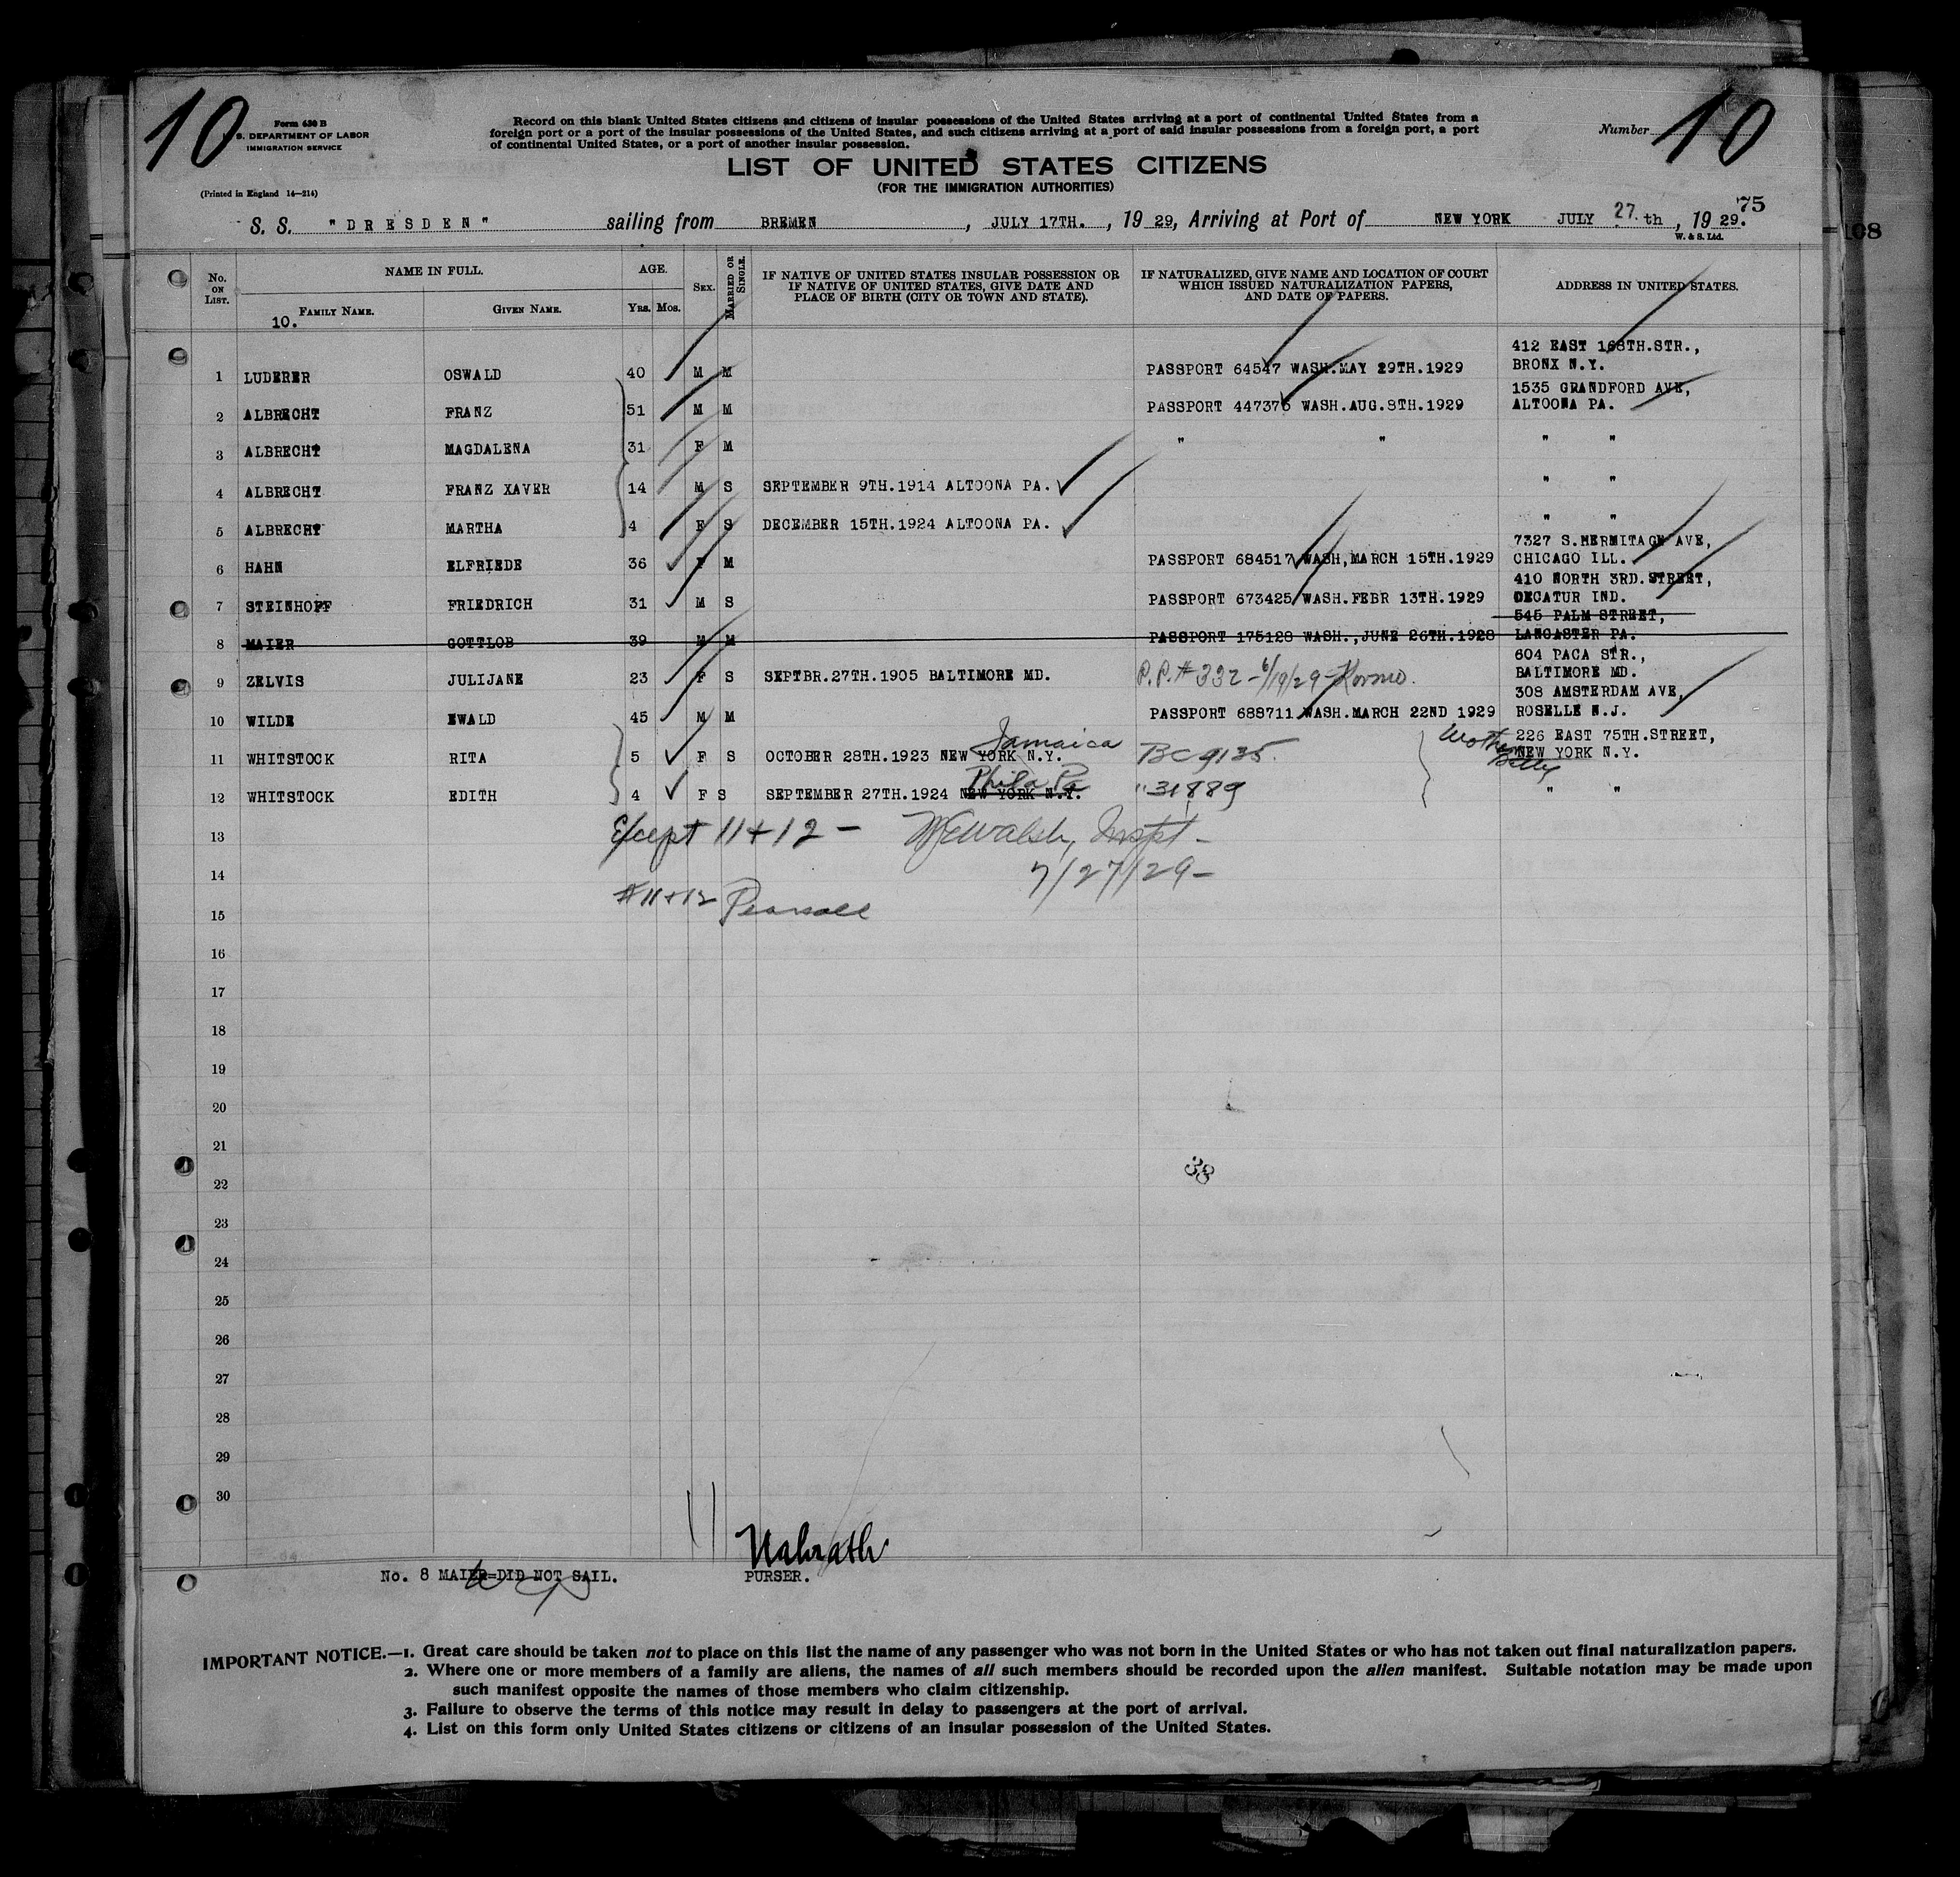 10
Form 630 B
U. S. DEPARTMENT OF LABOR
IMMIGRATION SERVICE
(Printed in England 14—214)
Record on this blank United States citizens and citizens of insular possessions of the United States arriving at a port of continental United States from a
foreign port or a port of the insular possessions of the United States, and such citizens arriving at a port of said insular possessions from a foreign port, a port
of continental United States, or a port of another insular possession.
Number 10
LIST OF UNITED STATES CITIZENS
(FOR THE IMMIGRATION AUTHORITIES)
75
S. S. "DRESDEN" sailing from BREMEN, JULY 17TH., 1929, Arriving at Port of NEW YORK JULY 27th, 1929.
W. & S. Ltd.
108
No. ON LIST. NAME IN FULL. AGE. SEX. MARRIED OR SINGLE. IF NATIVE OF UNITED STATES INSULAR POSSESSION OR IF NATIVE OF UNITED STATES, GIVE DATE AND PLACE OF BIRTH (CITY OR TOWN AND STATE). IF NATURALIZED, GIVE NAME AND LOCATION OF COURT WHICH ISSUED NATURALIZATION PAPERS, AND DATE OF PAPERS. ADDRESS IN UNITED STATES.
10. FAMILY NAME. GIVEN NAME. YRS. MOS.
1 LUDERER OSWALD 40 M M PASSPORT 64547 WASH.MAY 29TH.1929 412 EAST 168TH.STR., BRONX N.Y.
2 ALBRECHT FRANZ 51 M M PASSPORT 447376 WASH.AUG.8TH.1929 1535 GRANDFORD AVE, ALTOONA PA.
3 ALBRECHT MAGDALENA 31 F M " " " "
4 ALBRECHT FRANZ XAVER 14 M S SEPTEMBER 9TH.1914 ALTOONA PA. " "
5 ALBRECHT MARTHA 4 F S DECEMBER 15TH.1924 ALTOONA PA. " "
6 HAHN ELFRIEDE 36 F M PASSPORT 684517 WASH,MARCH 15TH.1929 7327 S.HERMITAGE AVE, CHICAGO ILL.
7 STEINHOFF FRIEDRICH 31 M S PASSPORT 673425 WASH.FEBR 13TH.1929 410 NORTH 3RD.STREET, DECATUR IND.
8 MAIER GOTTLOB 39 M M PASSPORT 175128 WASH.,JUNE 26TH.1928 545 PALM STREET, LANCASTER PA.
9 ZELVIS JULIJANE 23 F S SEPTBR.27TH.1905 BALTIMORE MD. P.P.# 332 - 6/19/29 - Kovno. 604 PACA STR., BALTIMORE MD.
10 WILDE EWALD 45 M M PASSPORT 688711 WASH.MARCH 22ND 1929 308 AMSTERDAM AVE, ROSELLE N.J.
Jamaica
11 WHITSTOCK RITA 5 F S OCTOBER 28TH.1923 NEW YORK N.Y. BC 9135. Mother 226 EAST 75TH.STREET, NEW YORK N.Y.
Phila Pa
12 WHITSTOCK EDITH 4 F S SEPTEMBER 27TH.1924 NEW YORK N.Y. " 31889 " "
13 Except 11+12 - Walsh, Inspt -
14 7/27/29 -
15 #11+12 Pearsall
16
17
18
19
20
21
22 38
23
24
25
26
27
28
29
30
Nahrath
No. 8 MAIER=DID NOT SAIL. PURSER.
IMPORTANT NOTICE.—1. Great care should be taken not to place on this list the name of any passenger who was not born in the United States or who has not taken out final naturalization papers.
2. Where one or more members of a family are aliens, the names of all such members should be recorded upon the alien manifest. Suitable notation may be made upon
such manifest opposite the names of those members who claim citizenship.
3. Failure to observe the terms of this notice may result in delay to passengers at the port of arrival.
4. List on this form only United States citizens or citizens of an insular possession of the United States.